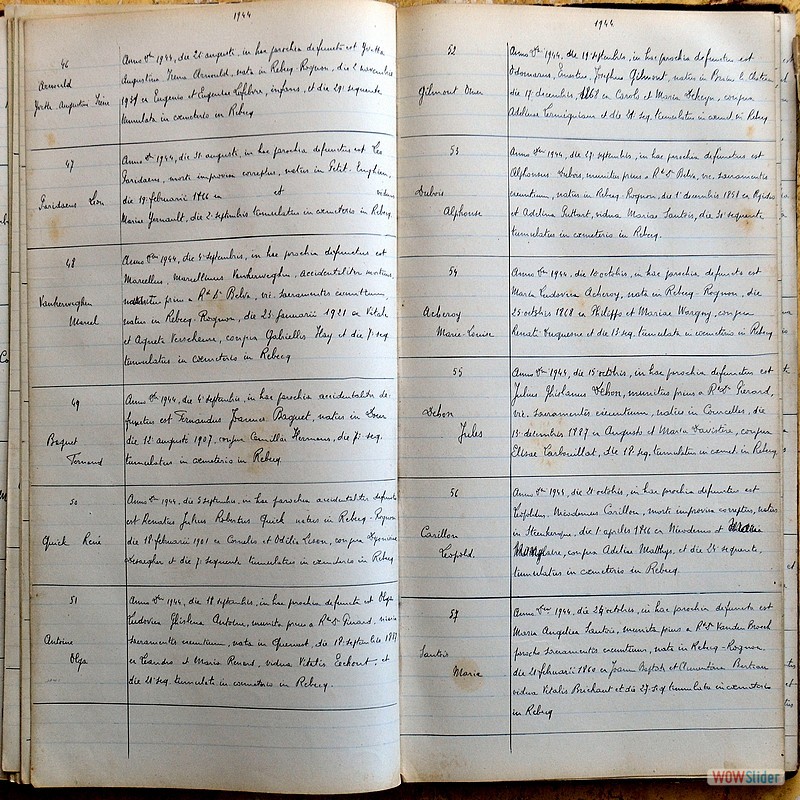 1944
46
Arnould
Yvette Augustine Irène
Anno Dni 1944, die 28 augusti, in hac parochia defuncta est Yvetta
Augustina Irena Arnould, nata in Rebecq-Rognon, die 2 novembris
ex Eugenio et Eugenia Lefebvre, infans, et die 29 sequente
tumulata in cœmeterio in Rebecq
47
Paridaens Léon
Anno Dni 1944, die 31 augusti, in hac parochia defunctus est Leo
Paridaens, morte improvisa correptus, natus in Petit-Enghien,
die 19 februarii 1866 ex et viduus
Mariæ Gernault, die 2 septembris tumulatus in cœmeterio in Rebecq.
48
Vankerweghen
Marcel
Anno Dni 1944, die 4 septembris, in hac parochia defunctus est
Marcellus, Marcellinus Vankerweghen, accidentaliter mortuus,
munitus prius a Rdo Do Belva, vic. sacramentis exeuntium,
natus in Rebecq-Rognon, die 23 januarii 1921 ex Vitale
et Agneta conjux Gabriellis Hay et die 7 seq.
tumulatus in cœmeterio in Rebecq
49
Baquet
Fernand
Anno Dni 1944, die 4 septembris, in hac parochia accidentaliter de-
functus est Fernandus Joannes Baquet, natus in Dour
die 12 augusti 1907, conjux Camillæ Hermans, die 7 seq.
tumulatus in cœmeterio in Rebecq.
50
Quick René
Anno Dni 1944, die 5 septembris, in hac parochia accidentaliter defunctus
est Renatus Julius Robertus Quick natus in Rebecq-Rognon
die 18 februarii 1901 ex Cornelio et Odilia conjux
et die 7 sequente tumulatus in cœmeterio in Rebecq
51
Antoine
Olga
Anno Dni 1944, die 18 septembris, in hac parochia defuncta est Olga
Ludovica Ghislena Antoine, munita prius a Rdo Do Pierard, vicario
sacramentis exeuntium, nata in Quenast, die 18 septembris 1887
ex Leandro et Maria Renard, vidua Vitalis Eeckout, et
die 21 seq. tumulata in cœmeterio in Rebecq.
1944
52
Gilmont Omer
Anno Dni 1944, die 19 septembris, in hac parochia defunctus est
Odomarus, Ernestus, Josephus Gilmont, natus in Braine le Château
die 17 decembris, 1868 ex Carolo et Maria conjux
Adelinæ et die 21 seq. tumulatus in cœmet. in Rebecq
53
Dubois
Alphonse
Anno Dni 1944, die 27 septembris, in hac parochia defunctus est
Alphonsus Dubois, munitus prius a Rdo Do Belva, vic. sacramentis
exeuntium, natus in Rebecq-Rognon, die 1a decembris 1851 ex Egidio
et Adelina viduus Mariæ Santois, die 30 sequente
tumulatus in cœmeterio in Rebecq.
54
Acheroy
Marie-Louise
Anno Dni 1944, die 10 octobris, in hac parochia defuncta est
Maria Ludovica Acheroy, nata in Rebecq-Rognon, die
25 octobris 1868 ex Philippo et Maria Wargny, conjux
Renati Duquesne et die 13 seq. tumulata in cœmeterio in Rebecq
55
Dehon
Jules
Anno Dni 1944, die 15 octobris, in hac parochia defunctus est
Julius Ghislenus Dehon, munitus prius a Rdo Do Pierard,
vic. sacramentis exeuntium, natus in Courcelles, die
13 decembris 1887 ex Augusto et Maria Davistère, conjux
Elisæ Carbouillat, die 18 seq. tumulatus in cœmet. in Rebecq
56
Carillon
Léopold
Anno Dni 1944, die 21 octobris, in hac parochia defunctus est
Leopoldus Nicodemus Carillon, morte improvisa correptus, natus
in Steenkerque, die 1 aprilis 1866 ex Nicodemo et Maria
conjux Adelæ Matthys, et die 24 sequente,
tumulatus in cœmeterio in Rebecq.
57
Santois
Marie
Anno Dni 1944, die 24 octobris, in hac parochia defuncta est
Maria Angelica Santois, munita prius a Rdo Do Vanden Broeck
parocho sacramentis exeuntium, nata in Rebecq-Rognon,
die 21 februarii 1860 ex Joanne Baptista et Clementina Berteau
vidua Vitalis Brichaut et die 27 seq. tumulata in cœmeterio
in Rebecq
WOWSlider